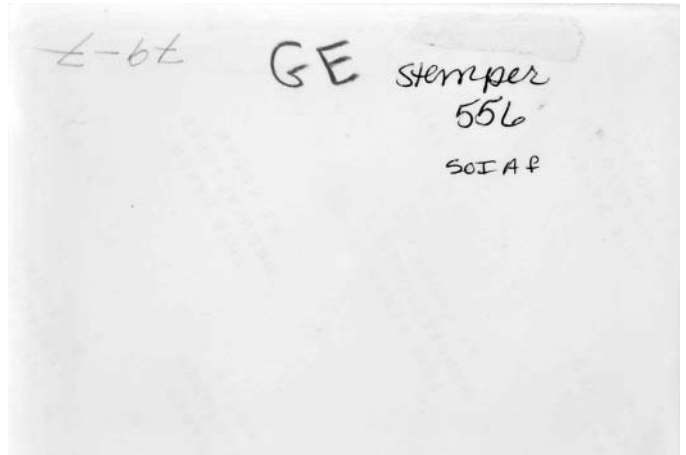 79-7
GE stemper
556
SOI A f